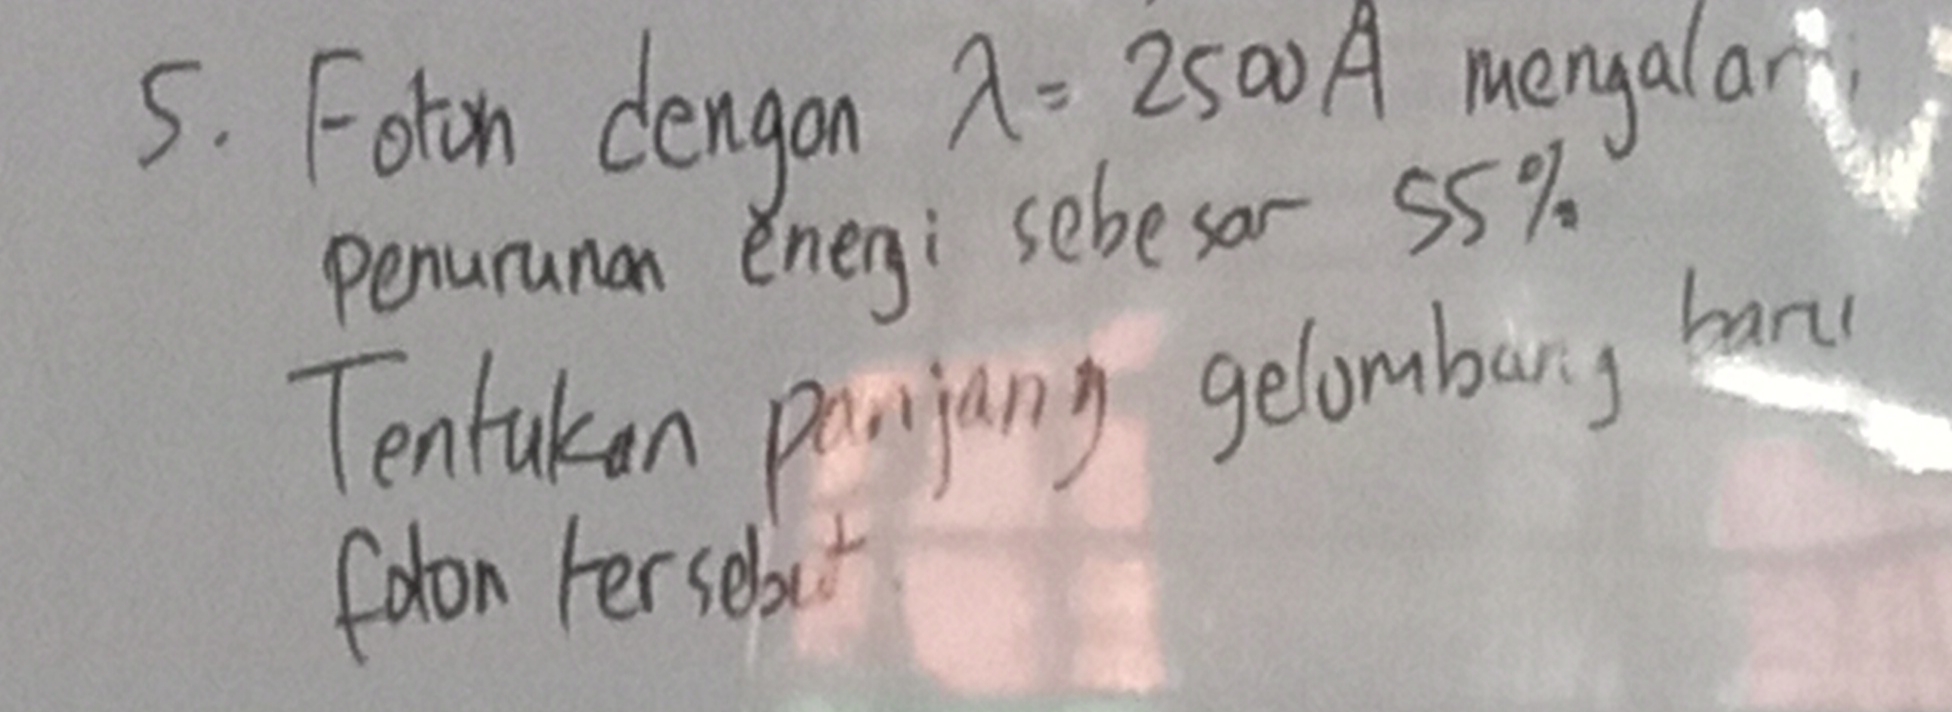 5. Foton dengan λ = 2500 Å mengalami
penurunan energi sebesar 55%
Tentukan panjang gelombang baru
foton tersebut